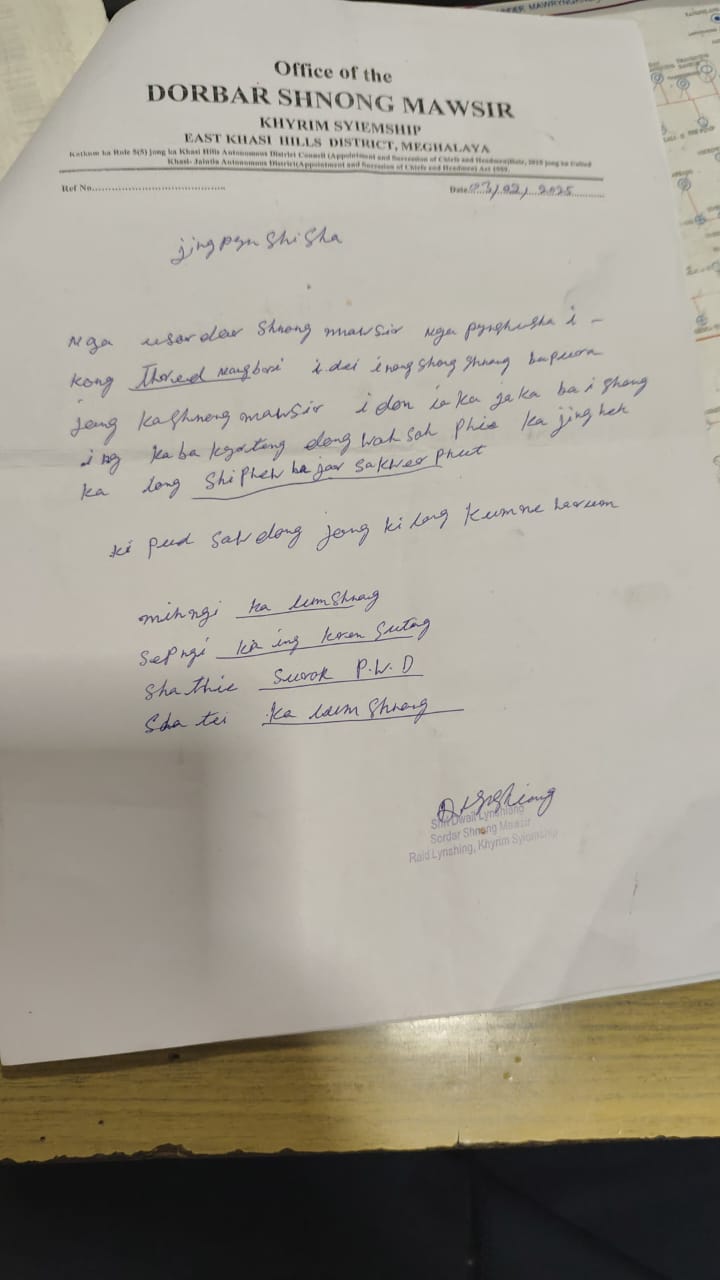 Office of the
DORBAR SHNONG MAWSIR
KHYRIM SYIEMSHIP
EAST KHASI HILLS DISTRICT, MEGHALAYA
Katkum ka Rule 5(5) jong ka Khasi Hills Autonomous District Council (Appointment and Succession of Chiefs and Headmen)Rule, jong ka United
Khasi- Jaintia Autonomous District(Appointment and Succession of Chiefs and Headmen) Act 1959.
Ref No........................................ Date 03/02/2025
jingpyn Shisha
Nga usordar Shnong mawsir nga pynshisha i -
kong i dei inongshong Shnong bapura
jong kaShnong mawsir i don ia ka jaka ba i shong
ing kaba kyrteng dong wah sah Phie ka jing heh
ka long Shiphew hajar Sakwer phut
ki pud sawdong jong ki long kumne harum
mihngi ka lumShnong
Sepngi ka ing
Sha thie Surok P.W.D
Sha tei ka lum Shnong
Shri Dwail Lynshiang
Sordar Shnong Mawsir
Raid Lynshing, Khyrim Syiemship